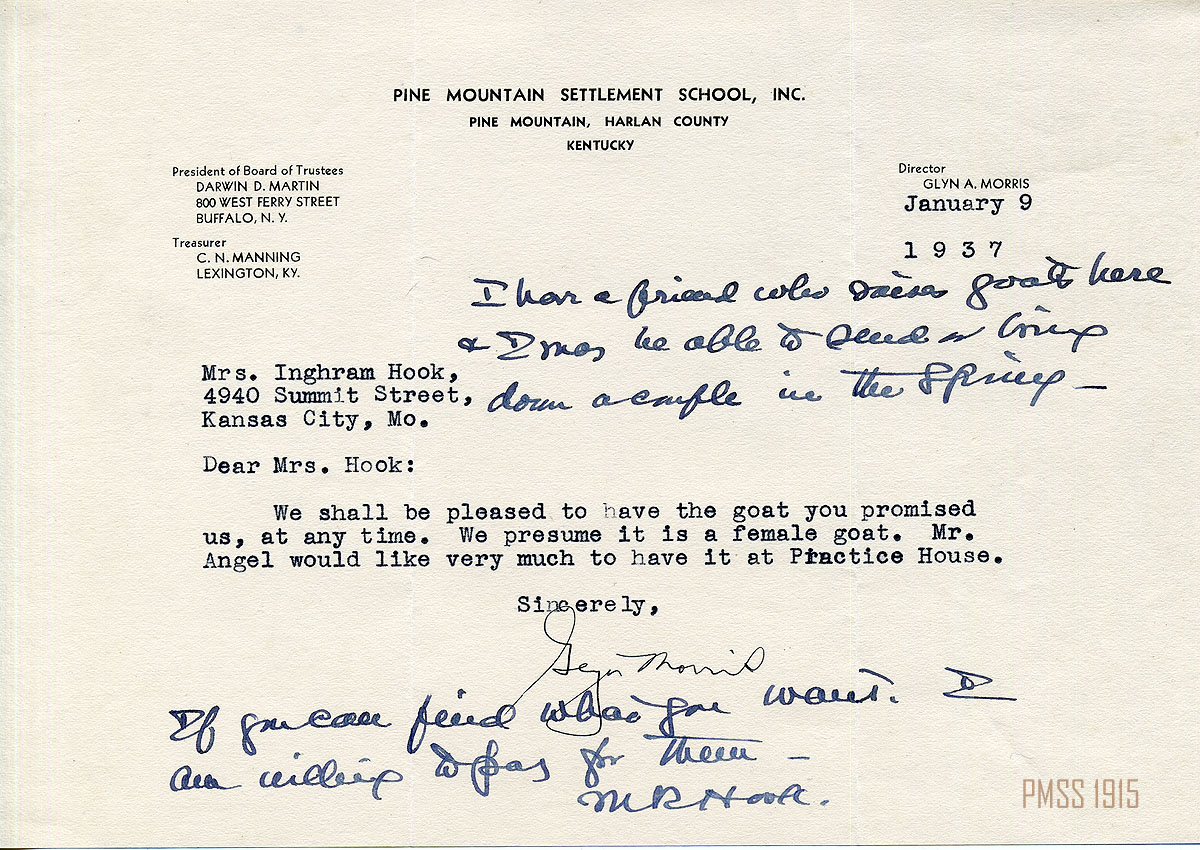 PINE MOUNTAIN SETTLEMENT SCHOOL, INC.
PINE MOUNTAIN, HARLAN COUNTY
KENTUCKY
President of Board of Trustees
DARWIN D. MARTIN
800 WEST FERRY STREET
BUFFALO, N. Y.
Treasurer
C. N. MANNING
LEXINGTON, KY.
Director
GLYN A. MORRIS
January 9
1937
I have a friend who raises goats here
& I may be able to send or bring
down a couple in the Spring —
Mrs. Inghram Hook,
4940 Summit Street,
Kansas City, Mo.
Dear Mrs. Hook:
We shall be pleased to have the goat you promised
us, at any time. We presume it is a female goat. Mr.
Angel would like very much to have it at Practice House.
Sincerely,
Glyn Morris
If you can find what you want. I
am willing to pay for them —
M R Hook.
PMSS 1915